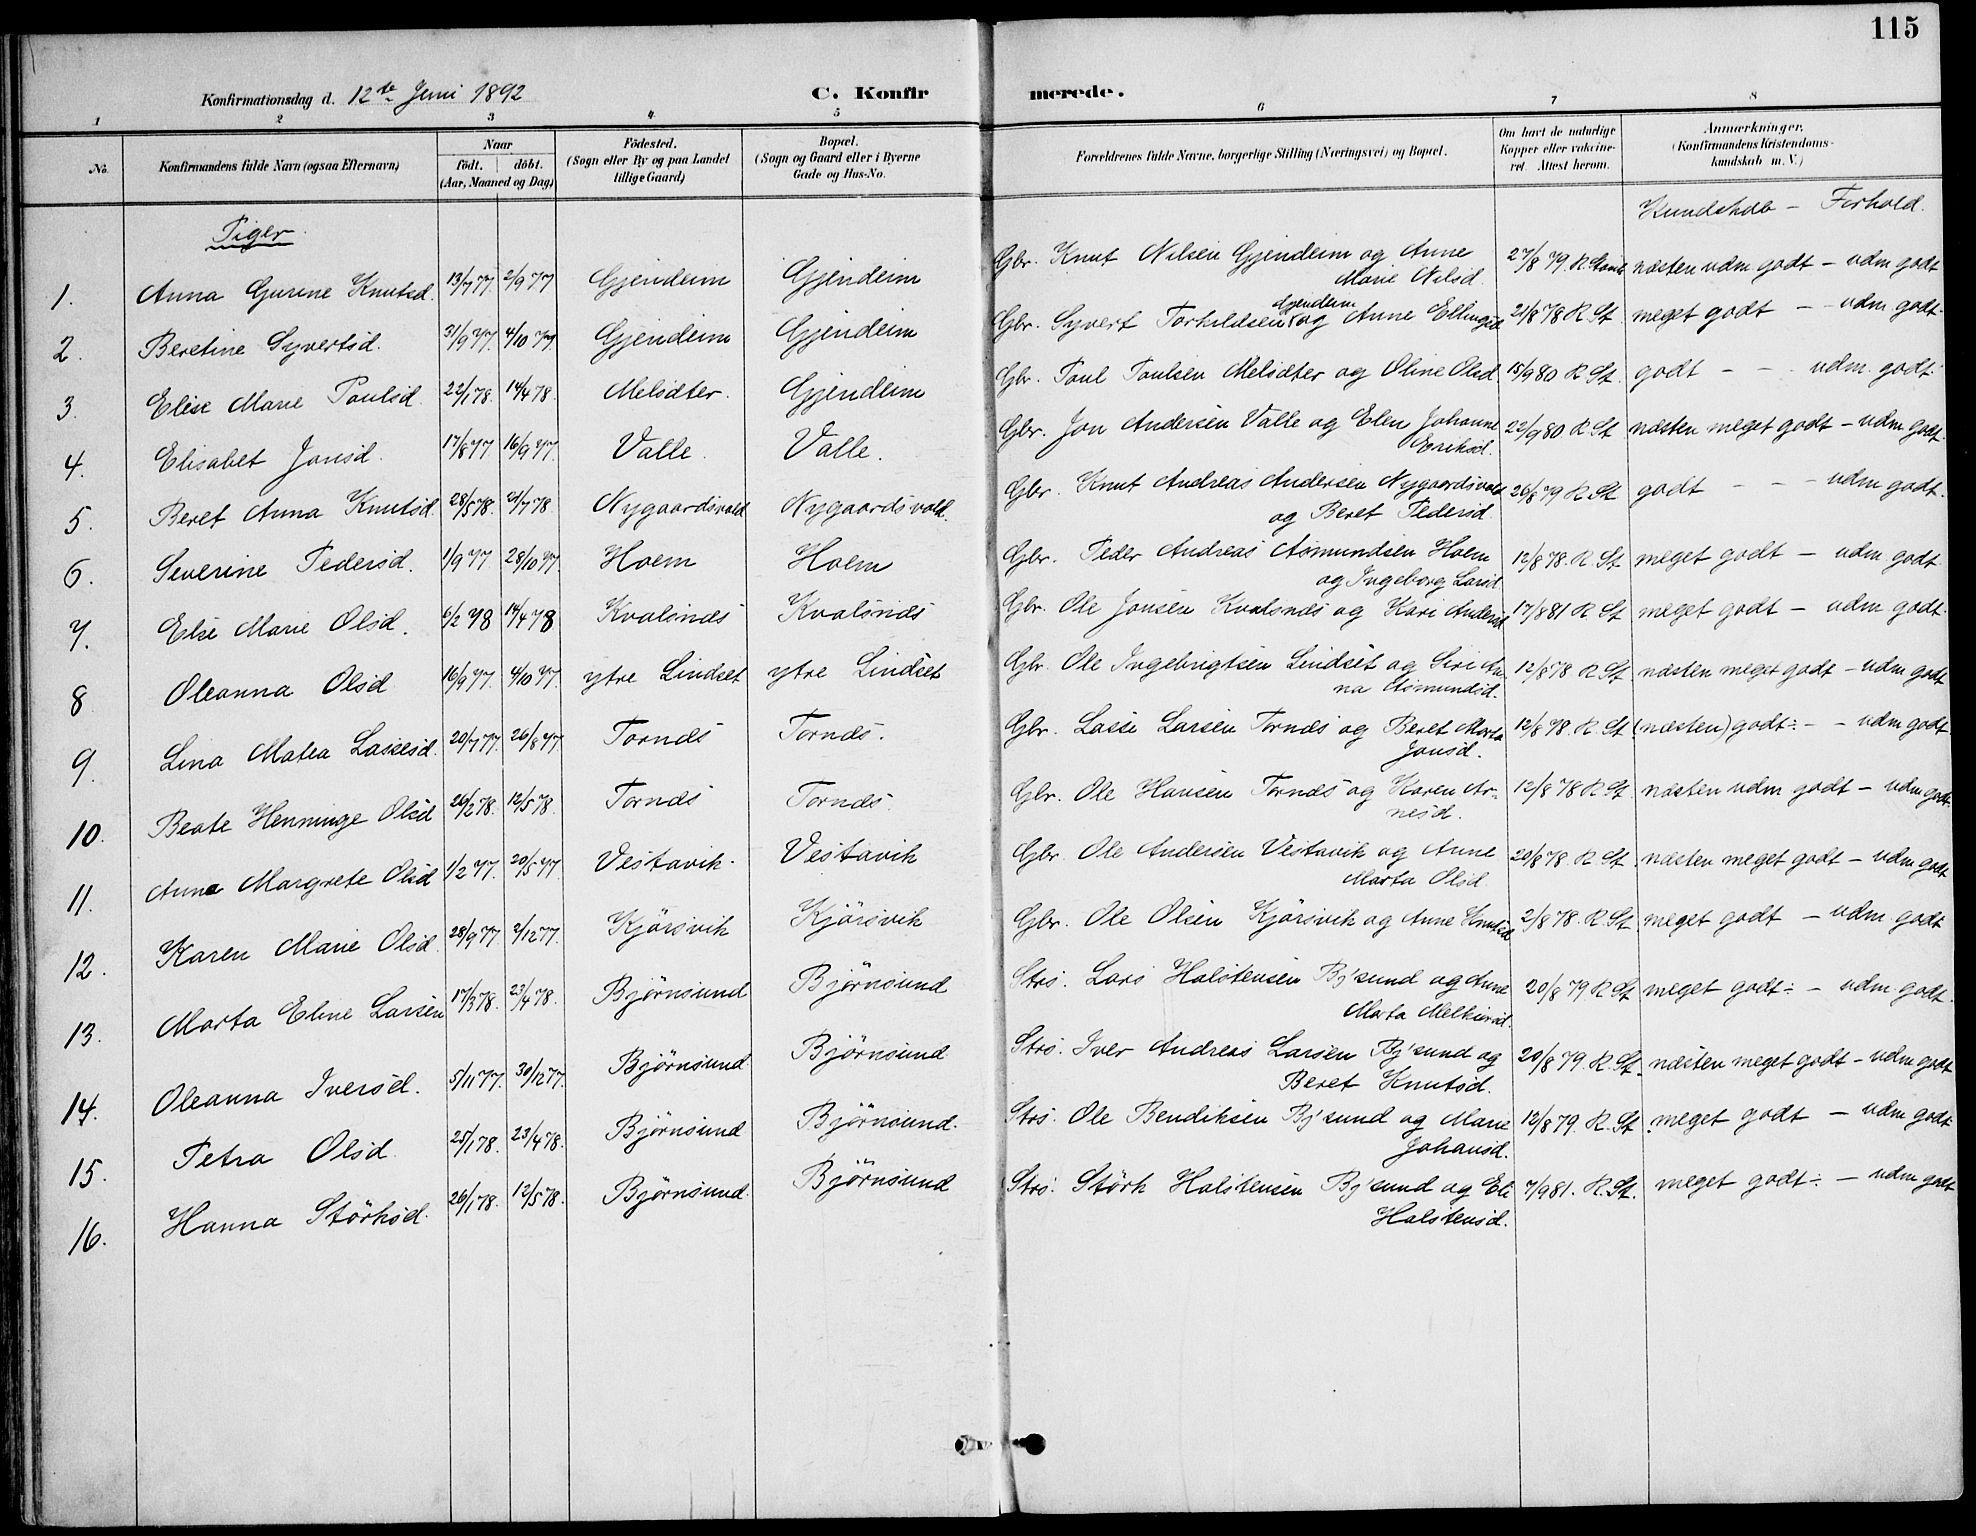 115
Konfirmationsdag d. 12te Juni 1892 C. Konfirmerede.
1 2 3 4 5 6 7 8
No. Konfirmandens fulde Navn (ogsaa Efternavn) Naar født. døbt. (Aar, Maaned og Dag) Fødested. (Sogn eller By og paa Landet tillige Gaard) Bopæl. (Sogn og Gaard eller i Byerne Gade og Hus-No. Forældrenes fulde Navne, borgerlige Stilling (Næringsvei) og Bopæl. Om havt de naturlige Kopper eller vakcineret. Attest herom. Anmærkninger. (Konfirmandens Kristendomskundskab m. V.)
Kundskab - Forhold.
Piger
1. Anna Gurine Knutsd. 13/7 77. 2/9 77 Gjendeim Gjendeim Gbr. Knut Nilsen Gjendeim og Anne Marie Nilsd. 27/8 79. R. næsten udm godt - udm godt
2. Beretine Syvertsd. 31/9 77. 4/10 77. Gjendeim Gjendeim Gbr. Syvert Torkildsen Gjendeim og Anne Ellingsd 21/8 78 R. St. meget godt - udm. godt.
3. Elise Marie Poulsd. 22/1 78. 14/4 78. Melsæter. Gjendeim Gbr. Poul Poulsen Melsæter og Oline Olsd 15/9 80 R St. godt - - udm. godt.
4. Elisabet Jonsd. 17/8 77 16/9 77. Valle. Valle. Gbr. Jon Andersen Valle og Elen Johanne Eriksd. 22/9 80 R St. næsten meget godt - udm godt.
5. Beret Anna Knutsd. 28/5 78. 21/7 78 Nygaardsvold Nygaardsvold. Gbr. Knut Andreas Andersen Nygaardsvold og Beret Pedersd. 26/8 79 R. St godt - - - udm godt.
6. Severine Pedersd. 1/9 77. 28/10 77. Hoem Hoem Gbr. Peder Andreas Asmundsen Hoem og Ingeborg Larsd 12/8 78. R. St meget godt - udm godt.
7. Elise Marie Olsd. 6/2 78 14/4 78 Kvalsnæs Kvalsnæs Gbr. Ole Jonsen Kvalsnæs og Kari Andersd 17/8 81 R. St meget godt - udm godt.
8. Oleanna Olsd 16/9 77. 4/10 77. ytre Lindset ytre Lindset Gbr. Ole Ingebrigtsen Lindset og Siri Anna Asmundsd. 12/8 78 R St. næsten meget godt - udm godt
9. Lina Matea Lassesd. 20/7 77. 26/8 77 Tornæs Tornæs. Gbr. Lasse Larsen Tornæs og Beret Marta Jonsd. 12/8 78. R. St (næsten) godt÷ - - udm godt.
10. Beate Henninge Olsd 26/2 78. 12/5 78. Tornæs Tornæs. Gbr. Ole Hansen Tornæs og Karen Arnesd. 12/8 78 R St næsten udm godt - udm godt.
11. Anne Margrete Olsd 1/2 77. 20/5 77 Vestavik. Vestavik Gbr. Ole Andersen Vestavik og Anne Marta Olsd. 20/8 78 R St. næsten meget godt - udm godt
12. Karen Marie Olsd. 28/9 77 2/12 77. Kjørsvik Kjørsvik Gbr. Ole Olsen Kjørsvik og Anne Knutsd 2/8 78. R. St. meget godt - udm. godt
13. Marta Eline Larsen 17/3 78. 23/4 78. Bjørnsund Bjørnsund Strs. Lars Halstensen Bj'sund og Anne Marta Melkiorsd. 20/8 79 R St meget godt÷ - udm godt.
14. Oleanna Iversd. 5/11 77. 30/12 77. Bjørnsund Bjørnsund Strs. Iver Andreas Larsen Bj'sund og Beret Knutsd. 20/8 79. R. St. næsten meget godt - udm godt
15. Petra Olsd. 25/1 78. 23/4 78. Bjørnsund Bjørnsund. Strs. Ole Bendiksen Bj'sund og Marie Johansd. 12/8 79. R. St meget godt - udm godt.
16. Hanna Størksd. 26/1 78. 12/5 78. Bjørnsund. Bjørnsund Strs. Størk Halstensen Bj'sund og Eli Halstensd. 7/9 81. R. St. meget godt÷ - udm godt